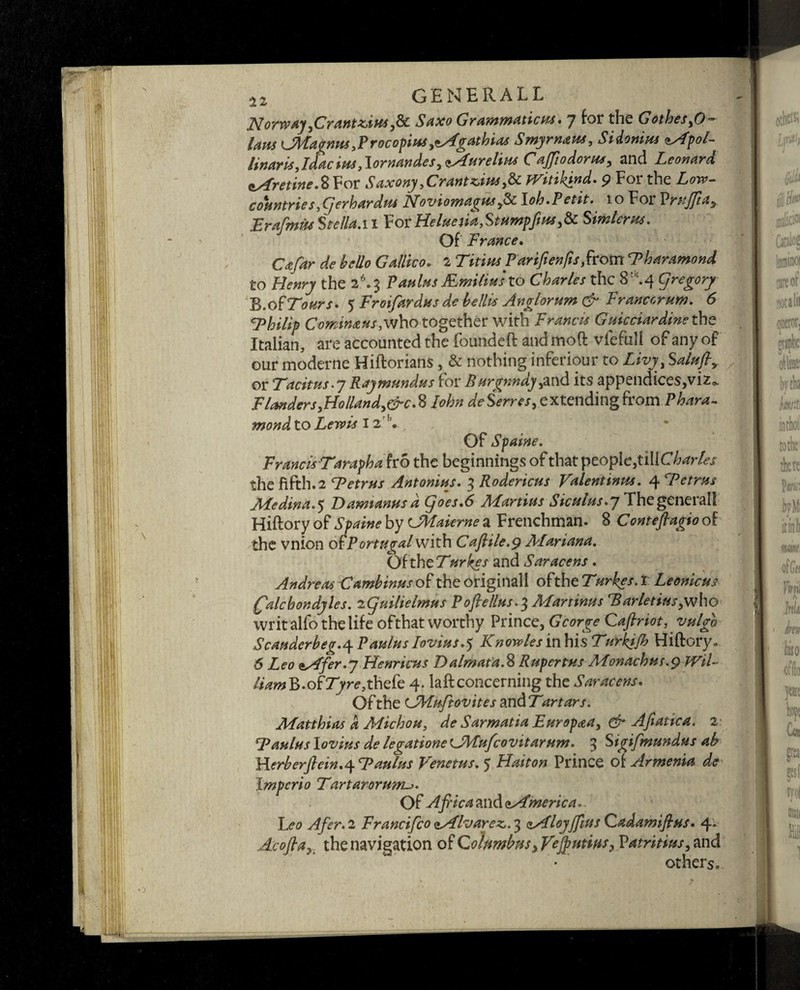 22 GENERALL
Norway,Crantzius,& Saxo Grammaticus. 7 for the Gothes,O-
laus Magnus,Procopius,Agathias Smyrnæus, Sidonius Apol-
linaris,Idacius,Iornandes, Aurelius Cassiodorus, and Leonard
Aretine.8 For Saxony,Crantzius,& Witikind. 9 For the Low-
countries,Gerhardus Noviomagus,& Ioh.Petit. 10 For Prussia,
Erasmus Stella.11 For Heluetia,Stumpsius,& Simlerus.
Of France.
Cæsar de bello Gallico. 2 Titius Parisiensis,from Pharamond
to Henry the 2⁶.3 Paulus Æmilius to Charles the 8ᵗʰ.4 Gregory
B.of Tours. 5 Froisardus de bellis Anglorum & Francorum. 6
Philip Cominæus,who together with Francis Guicciardine the
Italian, are accounted the soundest and most vsefull of any of
our moderne Historians, & nothing inferiour to Livy, Salust,
or Tacitus.7 Raymundus for Burgundy,and its appendices,viz.
Flanders,Holland,&c.8 Iohn de Serres, extending from Phara-
mond to Lewis 12ᵗʰ.
Of Spaine.
Francis Tarapha frō the beginnings of that people,till Charles
the fifth.2 Petrus Antonius. 3 Rodericus Valentinus. 4 Petrus
Medina.5 Damianus à Goes.6 Martius Siculus.7 The generall
History of Spaine by Maierne a Frenchman. 8 Contestagio of
the vnion of Portugal with Castile.9 Mariana.
Of the Turkes and Saracens.
Andreas Cambinus of the originall of the Turkes.1 Leonicus
Calchondyles. 2 Guilielmus Postellus.3 Martinus Barletius,who
writ also the life of that worthy Prince, George Castriot, vulgò
Scanderbeg.4 Paulus Iovius.5 Knowles in his Turkish History.
6 Leo Afer.7 Henricus Dalmata.8 Rupertus Monachus.9 Wil-
liam B.of Tyre,these 4. last concerning the Saracens.
Of the Muscovites and Tartars.
Matthias à Michou, de Sarmatia Europæa, & Asiatica. 2
Paulus Iovius de legatione Muscovitarum. 3 Sigismundus ab
Herberstein.4 Paulus Venetus. 5 Haiton Prince of Armenia de
Imperio Tartarorum.
Of Africa and America.
Leo Afer.2 Francisco Alvarez.3 Aloyssius Cadamistus. 4.
Acosta, the navigation of Columbus, Vesputius, Patritius, and
others.